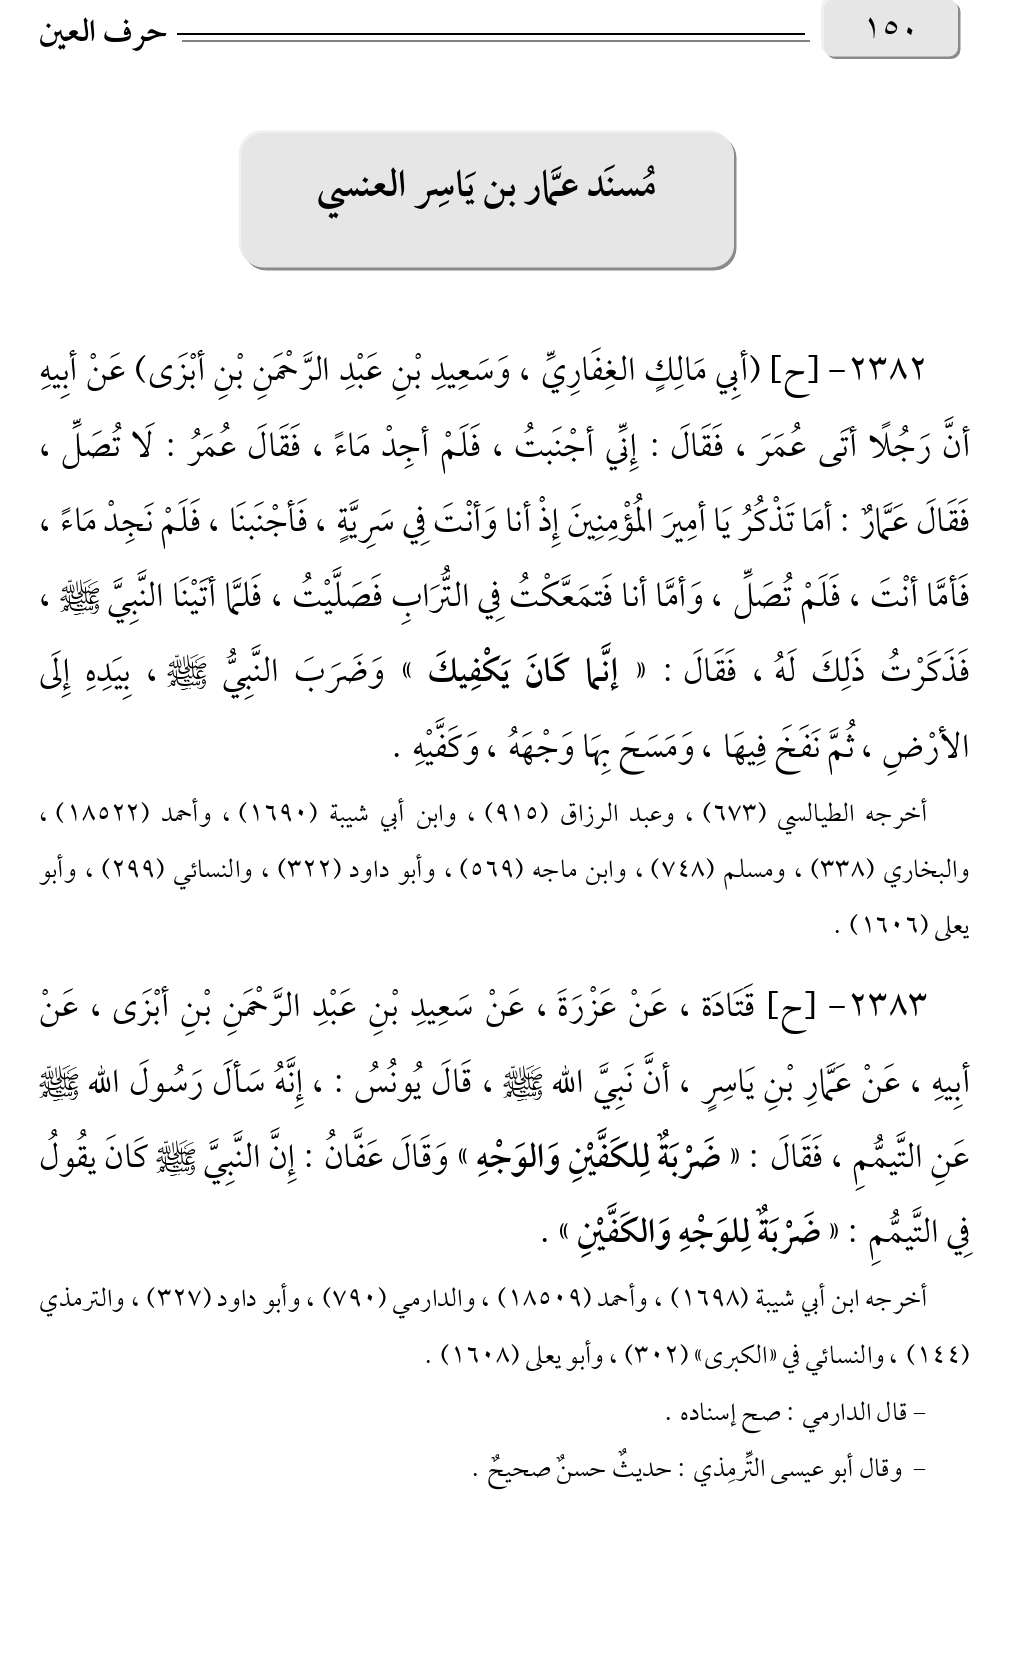 ١٥٠
حرف العين
مُسنَد عمَّار بن يَاسِر العنسي
٢٣٨٢- [ح] (أبِي مَالِكٍ الغِفَارِيِّ ، وَسَعِيدِ بْنِ عَبْدِ الرَّحْمَنِ بْنِ أبْزَى) عَنْ أبِيهِ
أنَّ رَجُلًا أتَى عُمَرَ ، فَقَالَ : إنِّي أجْنَبتُ ، فَلَمْ أجِدْ مَاءً ، فَقَالَ عُمَرُ : لَا تُصَلِّ ،
فَقَالَ عَمَّارٌ : أمَا تَذْكُرُ يَا أمِيرَ المُؤْمِنِينَ إذْ أنا وَأنْتَ فِي سَرِيَّةٍ ، فَأجْنَبنَا ، فَلَمْ نَجِدْ مَاءً ،
فَأمَّا أنْتَ ، فَلَمْ تُصَلِّ ، وَأمَّا أنا فَتمَعَّكْتُ فِي التُّرَابِ فَصَلَّيْتُ ، فَلمَّا أتَيْنَا النَّبِيَّ ﷺ ،
فَذَكَرْتُ ذَلِكَ لَهُ ، فَقَالَ : « إنَّما كَانَ يَكْفِيكَ » وَضَرَبَ النَّبِيُّ ﷺ ، بِيَدِهِ إلَى
الأرْضِ ، ثُمَّ نَفَخَ فِيهَا ، وَمَسَحَ بِهَا وَجْهَهُ ، وَكَفَّيْهِ .
أخرجه الطيالسي (٦٧٣) ، وعبد الرزاق (٩١٥) ، وابن أبي شيبة (١٦٩٠) ، وأحمد (١٨٥٢٢) ،
والبخاري (٣٣٨) ، ومسلم (٧٤٨) ، وابن ماجه (٥٦٩) ، وأبو داود (٣٢٢) ، والنسائي (٢٩٩) ، وأبو
يعلى (١٦٠٦) .
٢٣٨٣- [ح] قَتَادَة ، عَنْ عَزْرَةَ ، عَنْ سَعِيدِ بْنِ عَبْدِ الرَّحْمَنِ بْنِ أبْزَى ، عَنْ
أبِيهِ ، عَنْ عَمَّارِ بْنِ يَاسِرٍ ، أنَّ نَبِيَّ الله ﷺ ، قَالَ يُونُسُ : ، إنَّهُ سَألَ رَسُولَ الله ﷺ
عَنِ التَّيمُّمِ ، فَقَالَ : « ضَرْبَةٌ لِلكَفَّيْنِ وَالوَجْهِ » وَقَالَ عَفَّانُ : إنَّ النَّبِيَّ ﷺ كَانَ يقُولُ
فِي التَّيمُّمِ : « ضَرْبَةٌ لِلوَجْهِ وَالكَفَّيْنِ » .
أخرجه ابن أبي شيبة (١٦٩٨) ، وأحمد (١٨٥٠٩) ، والدارمي (٧٩٠) ، وأبو داود (٣٢٧) ، والترمذي
(١٤٤) ، والنسائي في «الكبرى» (٣٠٢) ، وأبو يعلى (١٦٠٨) .
– قال الدارمي : صح إسناده .
– وقال أبو عيسى التِّرمِذي : حديثٌ حسنٌ صحيحٌ .